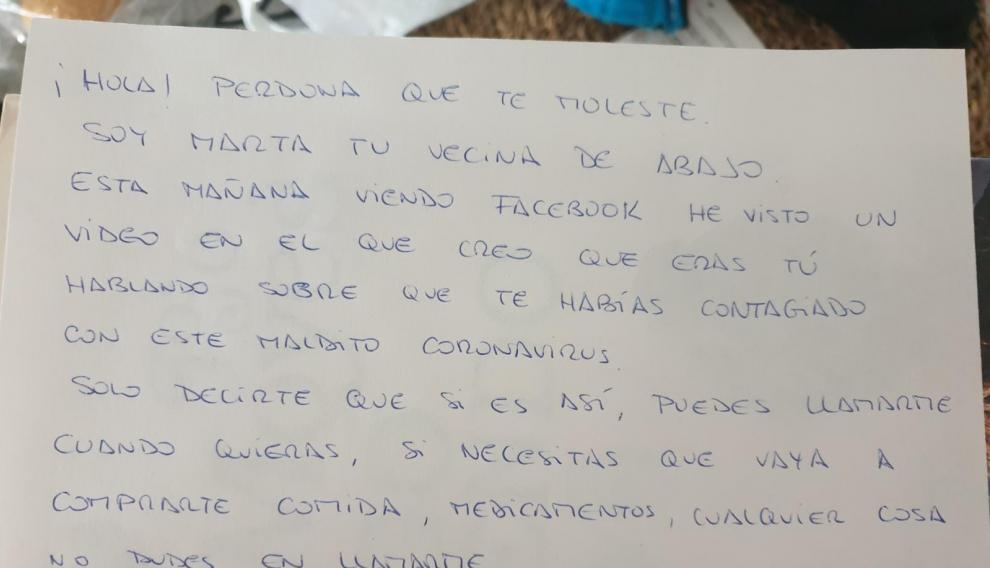 ¡HOLA! PERDONA QUE TE MOLESTE.
SOY MARTA TU VECINA DE ABAJO.
ESTA MAÑANA VIENDO FACEBOOK HE VISTO UN
VIDEO EN EL QUE CREO QUE ERAS TÚ
HABLANDO SOBRE QUE TE HABÍAS CONTAGIADO
CON ESTE MALDITO CORONAVIRUS.
SOLO DECIRTE QUE SI ES ASÍ, PUEDES LLAMARME
CUANDO QUIERAS, SI NECESITAS QUE VAYA A
COMPRARTE COMIDA, MEDICAMENTOS, CUALQUIER COSA
NO DUDES EN LLAMARME